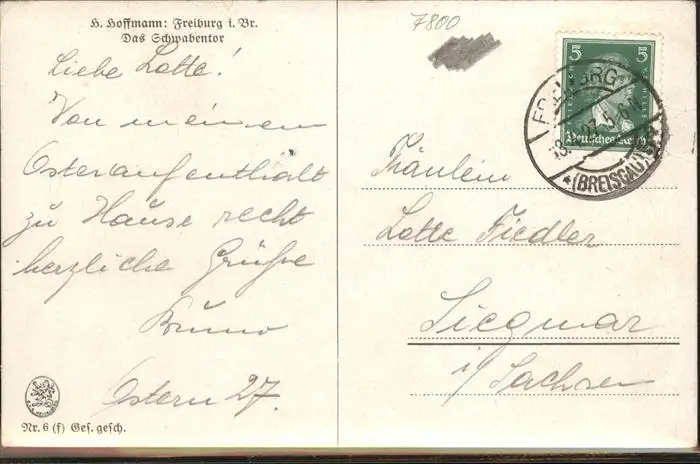 H. Hoffmann: Freiburg i. Br.
Das Schwabentor
Liebe Lotte!
Von meinem
Osteraufenthalt
zu Hause recht
herzliche Grüße
Bruno
Ostern 27.
Nr. 6 (f) Ges. gesch.
7800
5 5
Deutsches Reich
FREIBURG
(BREISGAU)
Fräulein
Lotte Fiedler
Siegmar
i/Sachsen